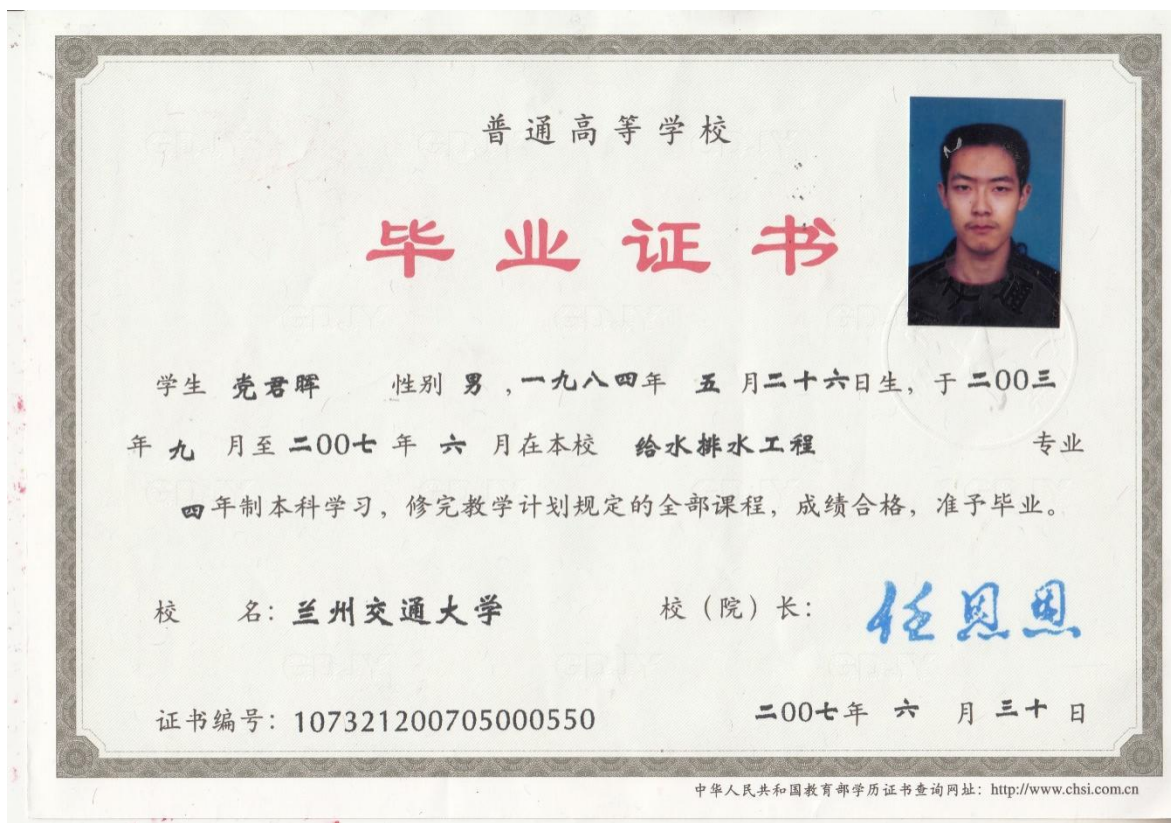 普通高等学校
毕业证书
学生 党君晖 性别 男 ,一九八四年 五 月二十六日生，于 二00三
年 九 月至 二00七 年 六 月在本校 给水排水工程 专业
四年制本科学习，修完教学计划规定的全部课程，成绩合格，准予毕业。
校 名：兰州交通大学 校（院）长： 任恩恩
证书编号：107321200705000550 二00七年 六 月 三十 日
中华人民共和国教育部学历证书查询网址：http://www.chsi.com.cn